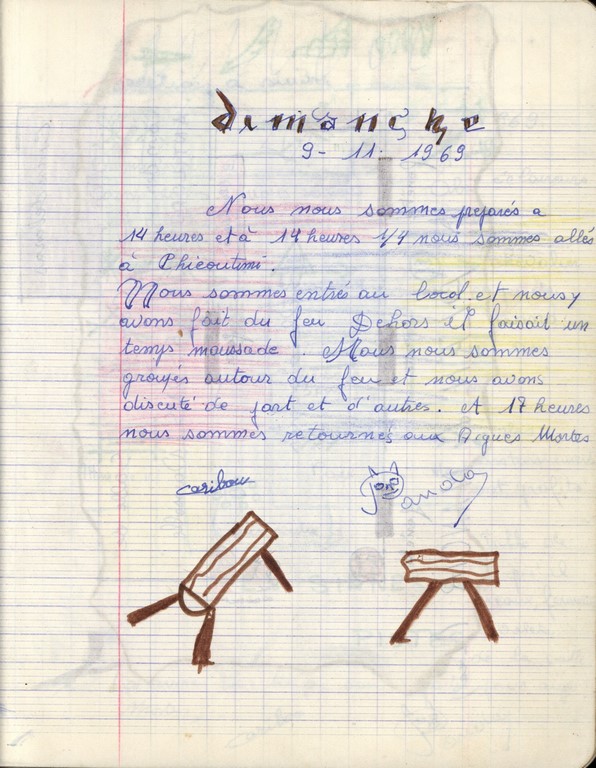 dimanche
9- 11. 1969
Nous nous sommes préparés a
14 heures et à 14 heures 1/4 nous sommes allés
à Chicoutimi.
Nous sommes entrés au local et nous y
avons fait du feu Dehors il faisait un
temps maussade. Nous nous sommes
groupés autour du feu et nous avons
discuté de part et d'autres. A 17 heures
nous sommes retournés aux Aigues Mortes
caribou
Panda